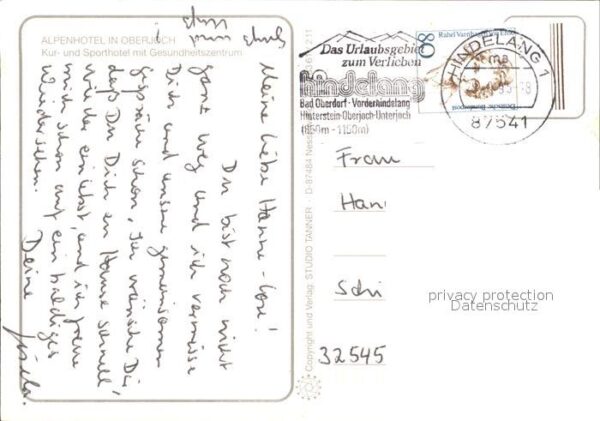 ALPENHOTEL IN OBERJOCH
Kur- und Sporthotel mit Gesundheitszentrum
Meine liebe Hanne-Lore!
Du bist noch nicht
ganz weg und ich vermisse
Dich und unsere gemeinsamen
Gespräche schon. Ich wünsche Dir,
daß Du Dich zu Hause schnell
wieder einlebst, und ich freue
mich schon auf ein baldiges
Wiedersehen.
Deine
Gisela.
Copyright und Verlag: STUDIO TANNER - D-87484
Das Urlaubsgebiet
zum Verlieben
hindelang
Bad Oberdorf · Vorderhindelang
Hinterstein · Oberjoch · Unterjoch
(850m - 1150m)
80
Rahel Varnhagen von Ense
Deutsche Bundespost
HINDELANG 1
87541
Frau
Han
Sch
32545
privacy protection
Datenschutz